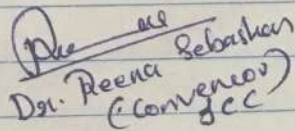 Dr. Reena Sebastian
(Convenor)
JCC